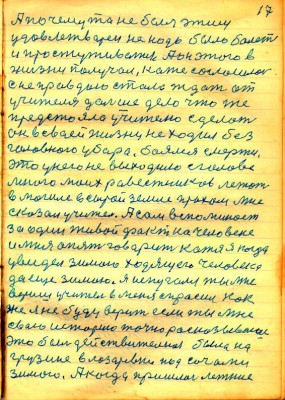 17
А почему та не была этим
удовлетварен не надо было болет
и простуживатся. А он этого в
жизни получал, как же сог
с не правдою стала ждат от
учителя далше дело что же
предстояло учителю сделат
он в своей жизни не ходил без
головного убара, боялся смерти,
это у него не выходило с головы
много моих равестников лежат
в могиле в сырой земле прахом мне
сказал учител. А сам вспоминает
за один живой факт на человеке
имня опят говарит катя я когда
увидел зимою ходящего человека
да еще зимою. Я испугалс ты мне
вериш учител в меня спрасил как
же я не буду верит если ты мне
свою историю точно расказываеш
это был действителной была на
грузине в лозаревки под сочами
зимою. А когда пришло летние